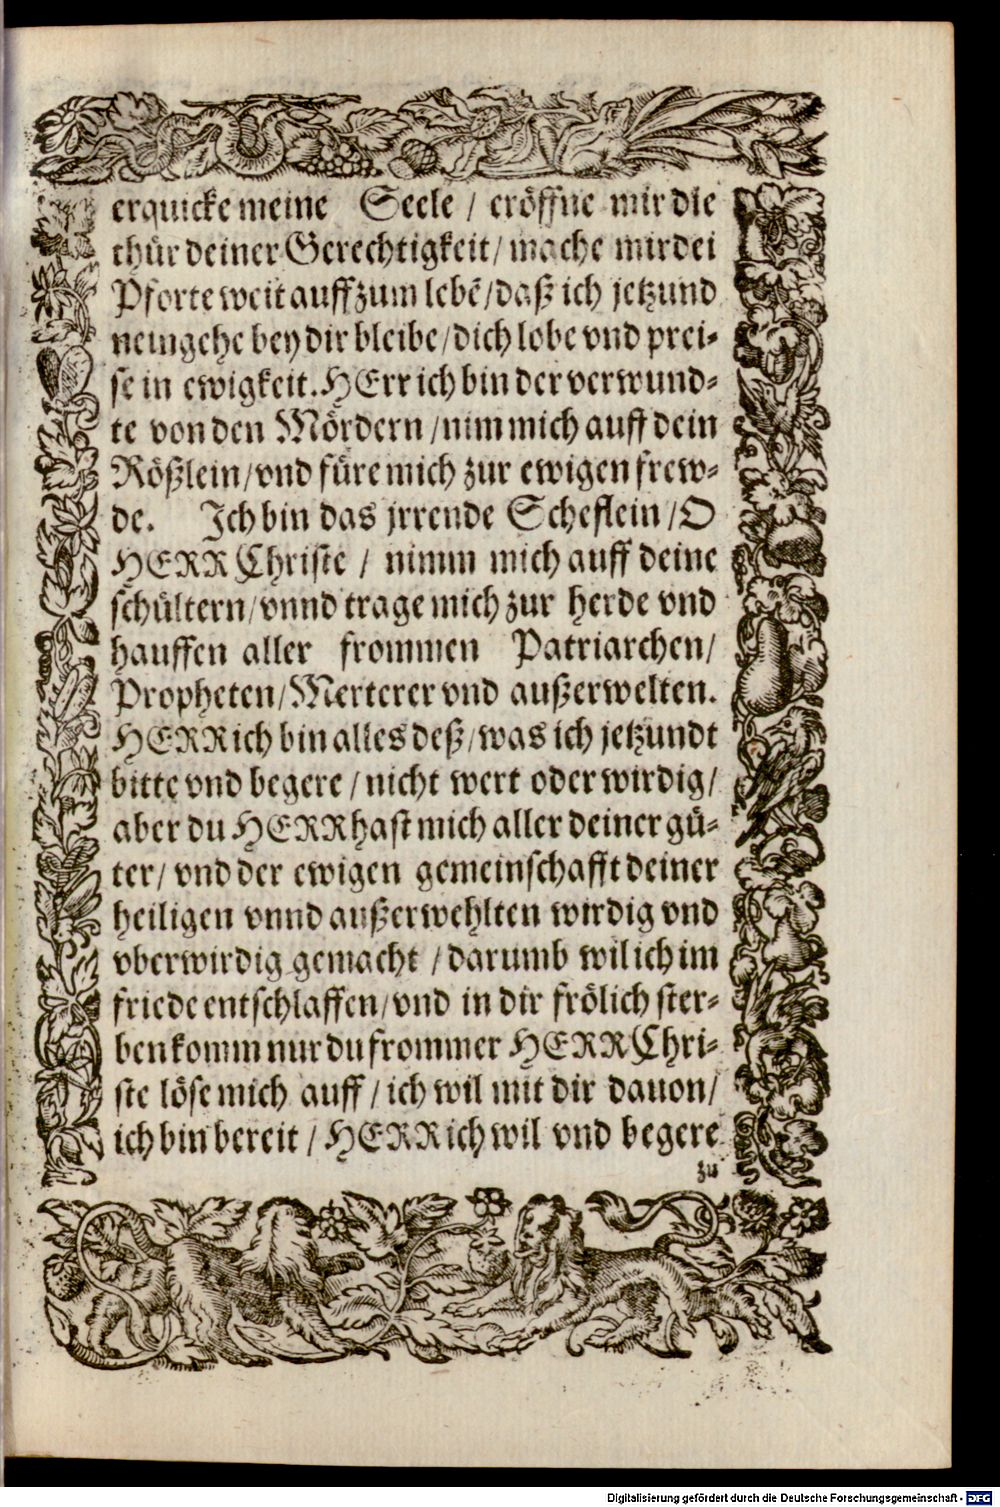 erquicke meine Seele / eröffne mir die
thür deiner Gerechtigkeit / mache mir dei
Pforte weit auff zum lebē / daß ich jetzund
neingehe bey dir bleibe / dich lobe vnd prei-
se in ewigkeit. HErr ich bin der verwund-
te von den Mördern / nim mich auff dein
Rößlein / vnd füre mich zur ewigen frew-
de. Ich bin das jrrende Scheflein / O
HERR Christe / nimm mich auff deine
schültern / vnnd trage mich zur herde vnd
hauffen aller frommen Patriarchen /
Propheten / Merterer vnd außerwelten.
HERR ich bin alles deß / was ich jetzundt
bitte vnd begere / nicht wert oder wirdig /
aber du HERR hast mich aller deiner gü-
ter / vnd der ewigen gemeinschafft deiner
heiligen vnnd außerwehlten wirdig vnd
vberwirdig gemacht / darumb wil ich im
friede entschlaffen / vnd in dir frölich ster-
ben komm nur du frommer HERR Chri-
ste löse mich auff / ich wil mit dir dauon /
ich bin bereit / HERR ich wil vnd begere
zu
Digitalisierung gefördert durch die Deutsche Forschungsgemeinschaft - DFG